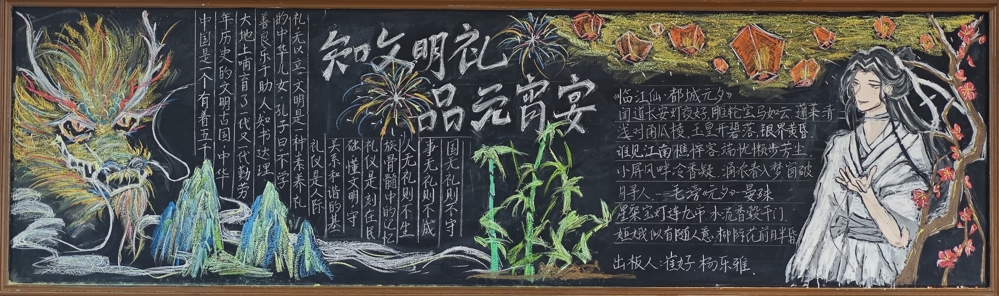 知文明礼
品元宵宴
中国是一个有着五千
年历史的文明古国,中华
大地上哺育了一代又一代勤劳
善良乐于助人知书达理
的中华儿女。孔子曰不学
礼无以立,文明是一种来来礼
礼仪是人际
关系和谐的基
础,懂文明守
礼仪是刻在民
族骨髓中的记忆
人无礼则不生
事无礼则不成
国无礼则不守
《临江仙·都城元夕》
闻道长安灯夜好,雕轮宝马如云 蓬莱清
浅对觚棱,玉皇开碧落,银界黄昏
谁见江南憔悴客,端忧懒步芳尘,
小屏风畔冷香凝 酒浓春入梦 窗破
月寻人,——毛滂《元夕》·晏殊
宝灯连九 水沉香 千门
姮娥似有随人意,柳阴花前月半昏
出板人:崔好 杨乐雅.